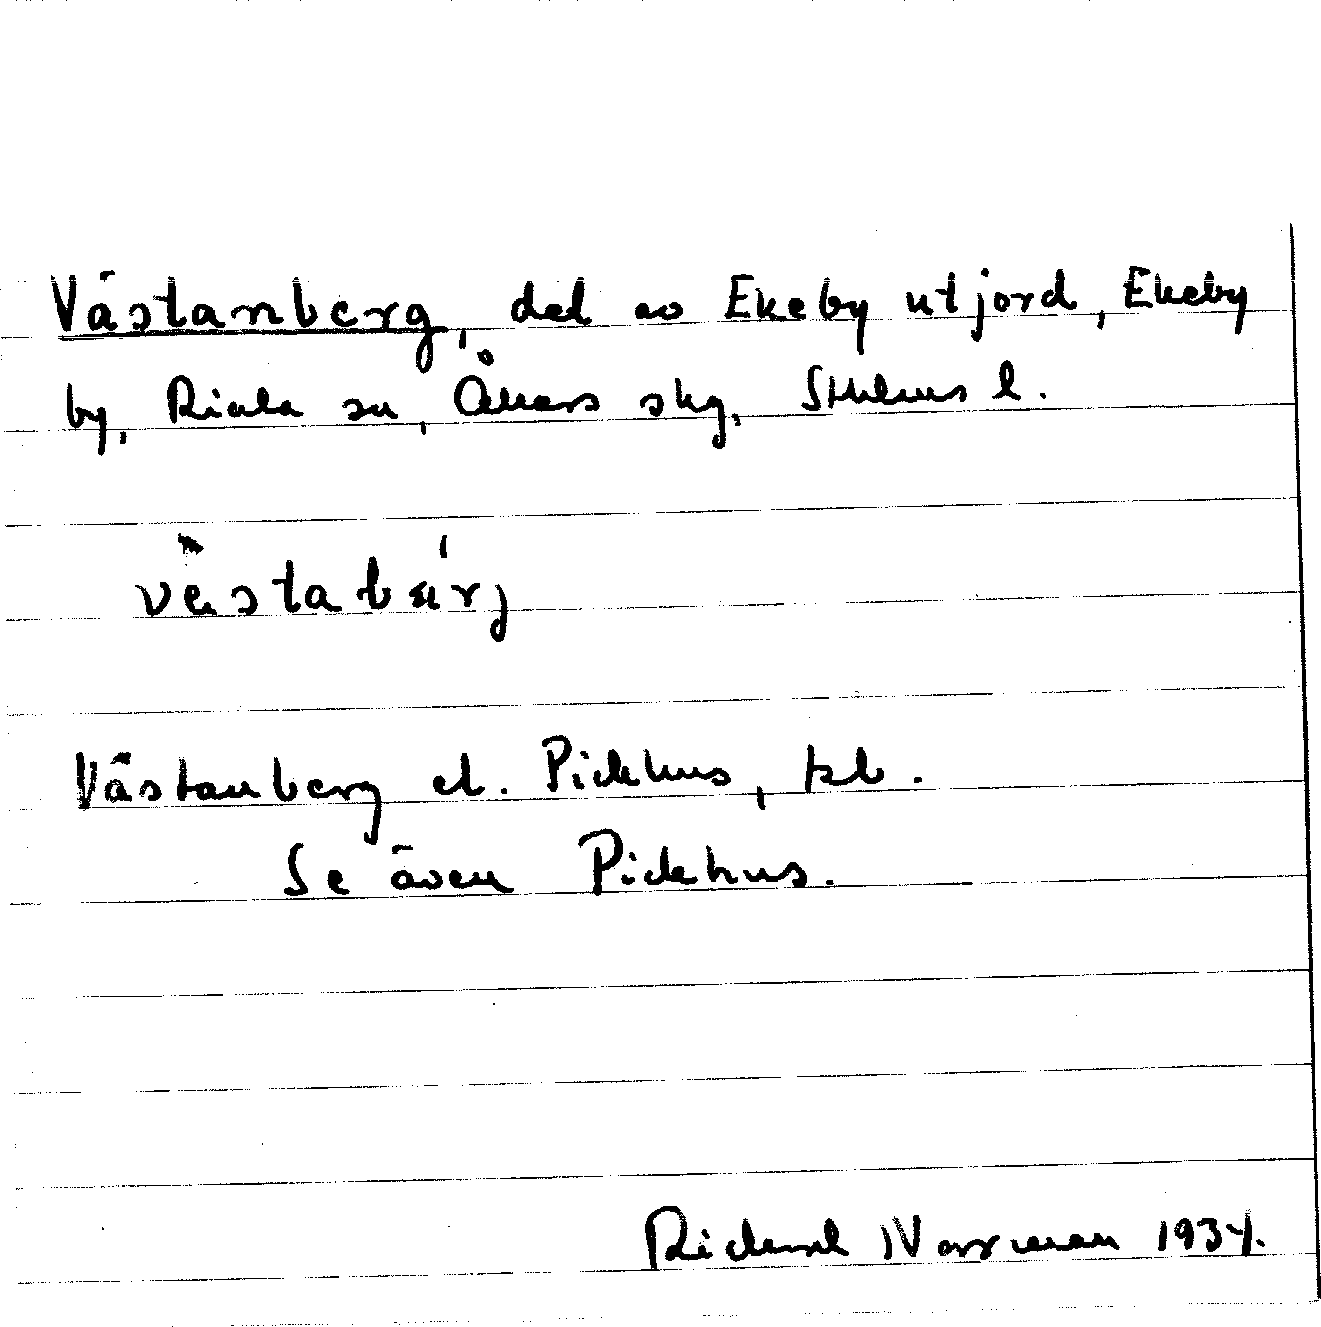 Västanberg, del av Ekeby utjord, Ekeby
by, Riala sn, Åkers skg, Sthlms l.
vä̀stabǽrj
Västanberg el. Pickhus, tsb.
Se även Pickhus.
Richard Norrman 1934.